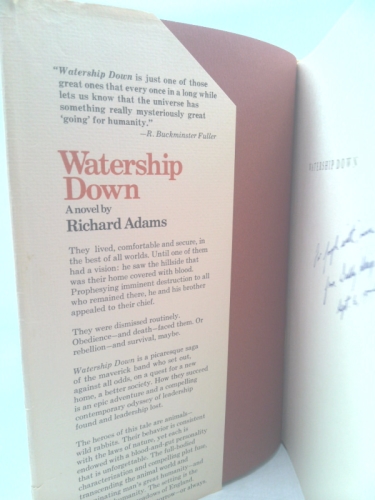 “Watership Down is just one of those
great ones that every once in a long while
lets us know that the universe has
something really mysteriously great
‘going’ for humanity.”
—R. Buckminster Fuller
Watership
Down
A novel by
Richard Adams
They lived, comfortable and secure, in
the best of all worlds. Until one of them
had a vision: he saw the hillside that
was their home covered with blood.
Prophesying imminent destruction to all
who remained there, he and his brother
appealed to their chief.
They were dismissed routinely.
Obedience—and death—faced them. Or
rebellion—and survival, maybe.
Watership Down is a picaresque saga
of the maverick band who set out,
against all odds, on a quest for a new
home, a better society. How they succeed
is an epic adventure and a compelling
contemporary odyssey of leadership
found and leadership lost.
The heroes of this tale are animals—
wild rabbits. Their behavior is consistent
with the laws of nature, yet each is
endowed with a blood-and-gut personality
that is unforgettable. The full-bodied
characterization and compelling plot fuse,
transcending the animal world and
man's great humanity—and
The writing is the
of England
WATERSHIP DOWN